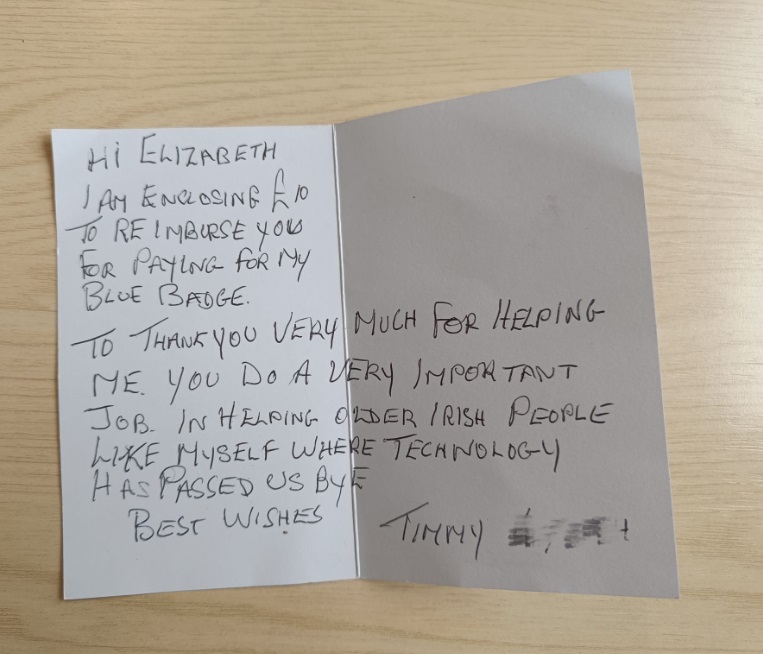 Hi ELIZABETH
I AM ENCLOSING £10
TO REIMBURSE YOU
FOR PAYING FOR MY
BLUE BADGE.
TO THANK YOU VERY MUCH FOR HELPING
ME. YOU DO A VERY IMPORTANT
JOB. IN HELPING OLDER IRISH PEOPLE
LIKE MYSELF WHERE TECHNOLOGY
HAS PASSED US BYE
BEST WISHES TIMMY